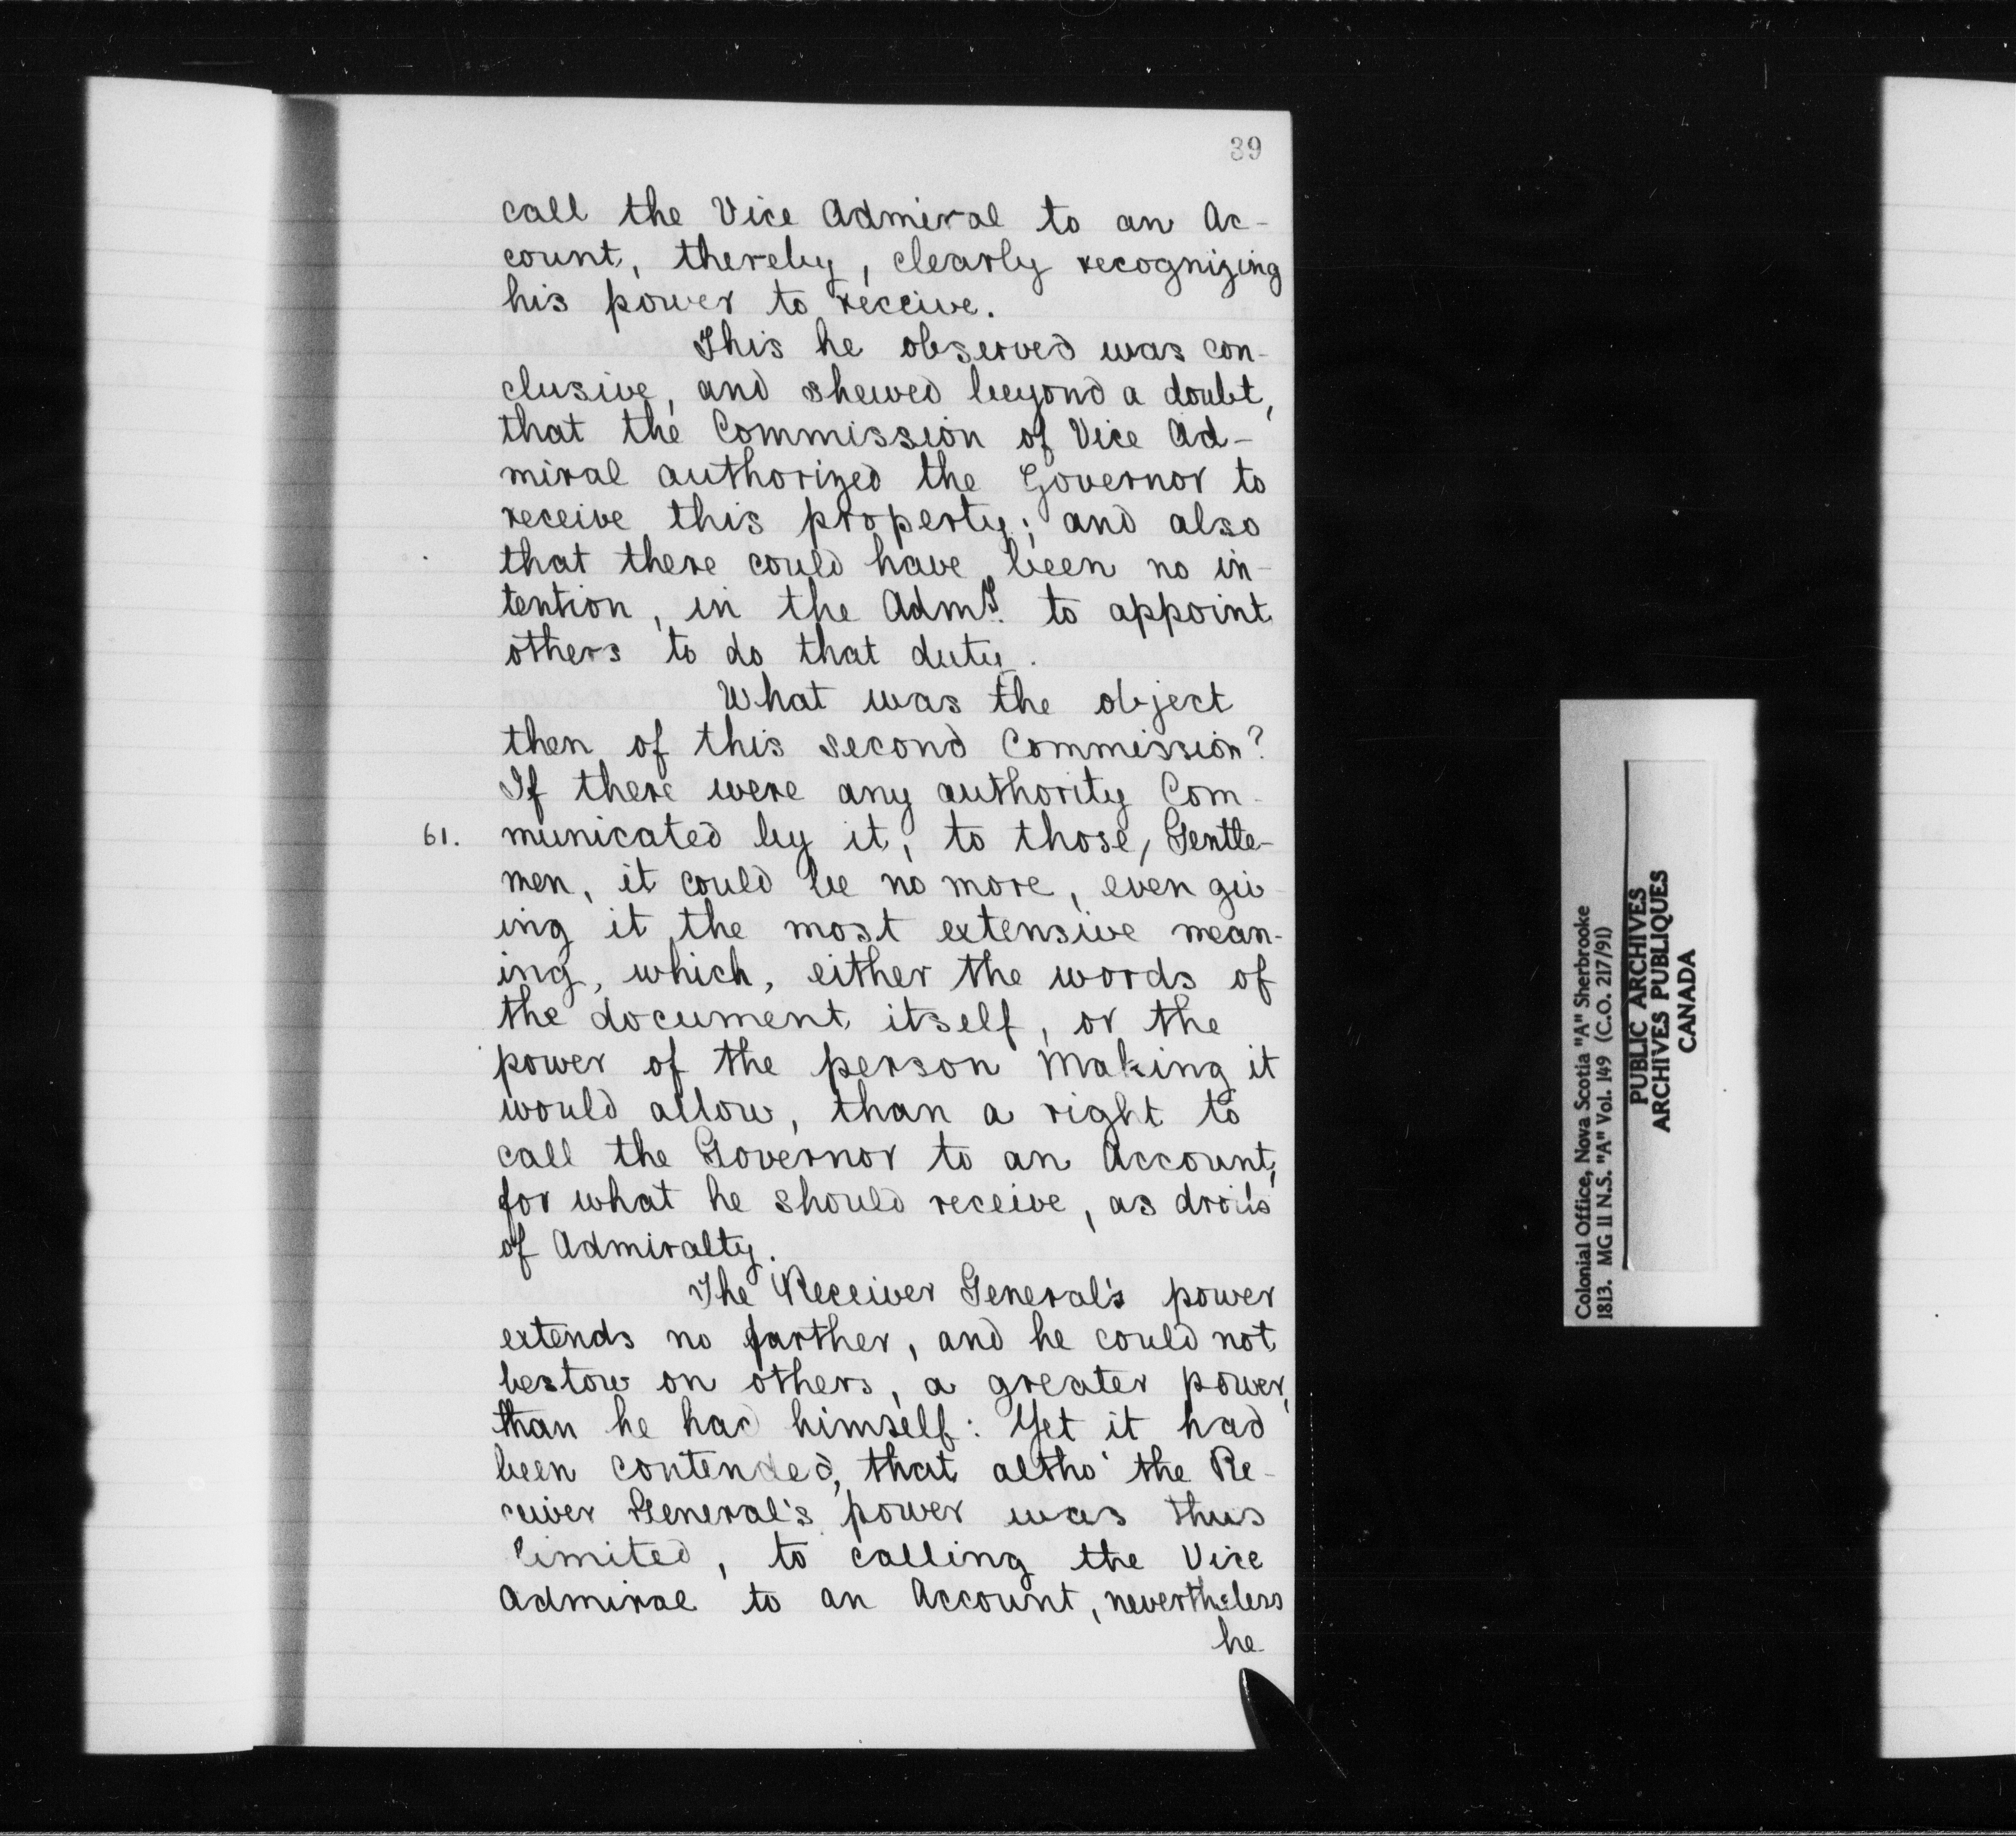 39
call the Vice Admiral to an Ac-
count, thereby, clearly recognizing
his power to receive.
This he observed was con-
clusive, and shewed beyond a doubt,
that the Commission of Vice Ad-
miral authorized the Governor to
receive this property; and also
that there could have been no in-
tention, in the Adm.^s to appoint
others to do that duty.
What was the object
then of this second Commission?
If there were any authority Com-
61. municated by it, to those, Gentle-
men, it could be no more, even giv-
ing it the most extensive mean-
ing, which, either the words of
the document itself, or the
power of the person making it
would allow, than a right to
call the Governor to an Account,
for what he should receive, as droits
of Admiralty.
The Receiver General's power
extends no farther, and he could not
bestow on others, a greater power,
than he had himself: Yet it had
been contended, that altho' the Re-
ceiver General's power was thus
limited, to calling the Vice
Admiral to an Account, nevertheless
he
Colonial Office, Nova Scotia "A" Sherbrooke
1813. MG 11 N.S. "A" Vol. 149 (C.O. 217/91)
PUBLIC ARCHIVES
ARCHIVES PUBLIQUES
CANADA